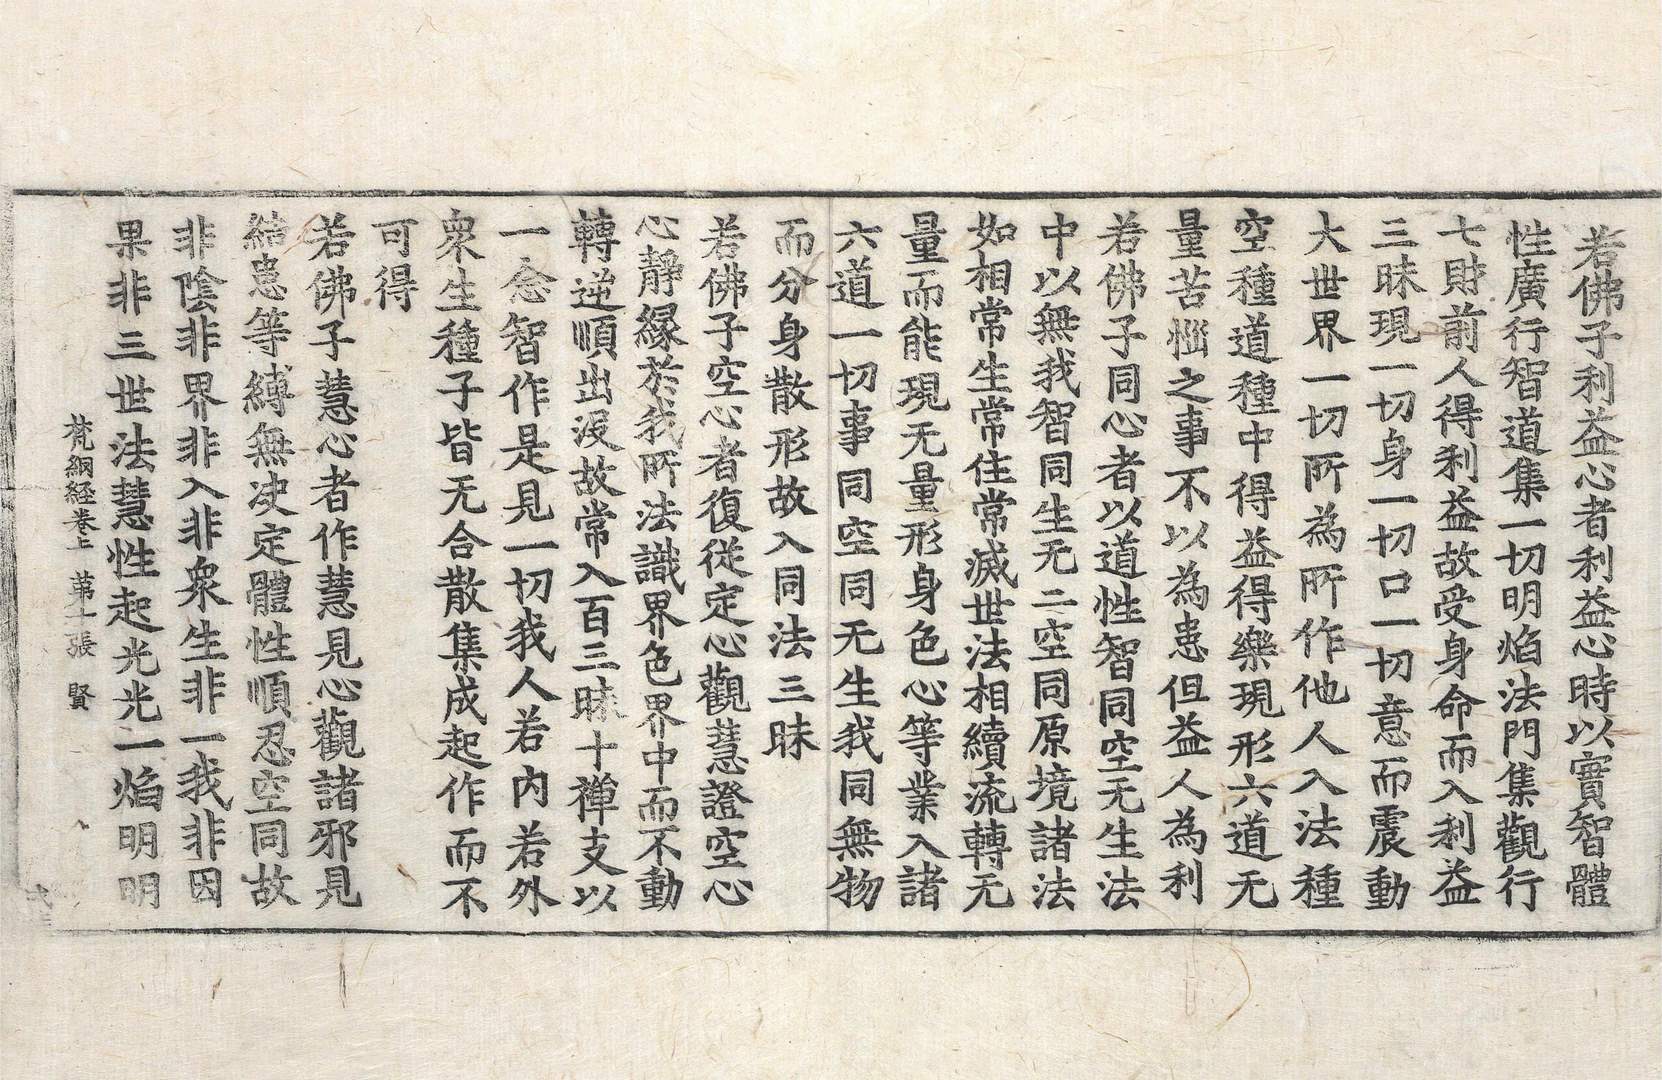 若佛子利益心者利益心時以實智體
性廣行智道集一切明焰法門集觀行
七財前人得利益故受身命而入利益
三昧現一切身一切口一切意而震動
大世界一切所為所作他人入法種
空種道種中得益得樂現形六道无
量苦惱之事不以為患但益人為利
若佛子同心者以道性智同空无生法
中以無我智同生无二空同原境諸法
如相常生常住常滅世法相續流轉无
量而能現无量形身色心等業入諸
六道一切事同空同无生我同無物
而分身散形故入同法三昧
若佛子空心者復從定心觀慧證空心
心靜緣於我所法識界色界中而不動
轉逆順出沒故常入百三昧十禪支以
一念智作是見一切我人若內若外
衆生種子皆无合散集成起作而不
可得
若佛子慧心者作慧見心觀諸邪見
結患等縛無決定體性順忍空同故
非陰非界非入非衆生非一我非因
果非三世法慧性起光光一焰明明
梵網経卷上 苐十張 賢